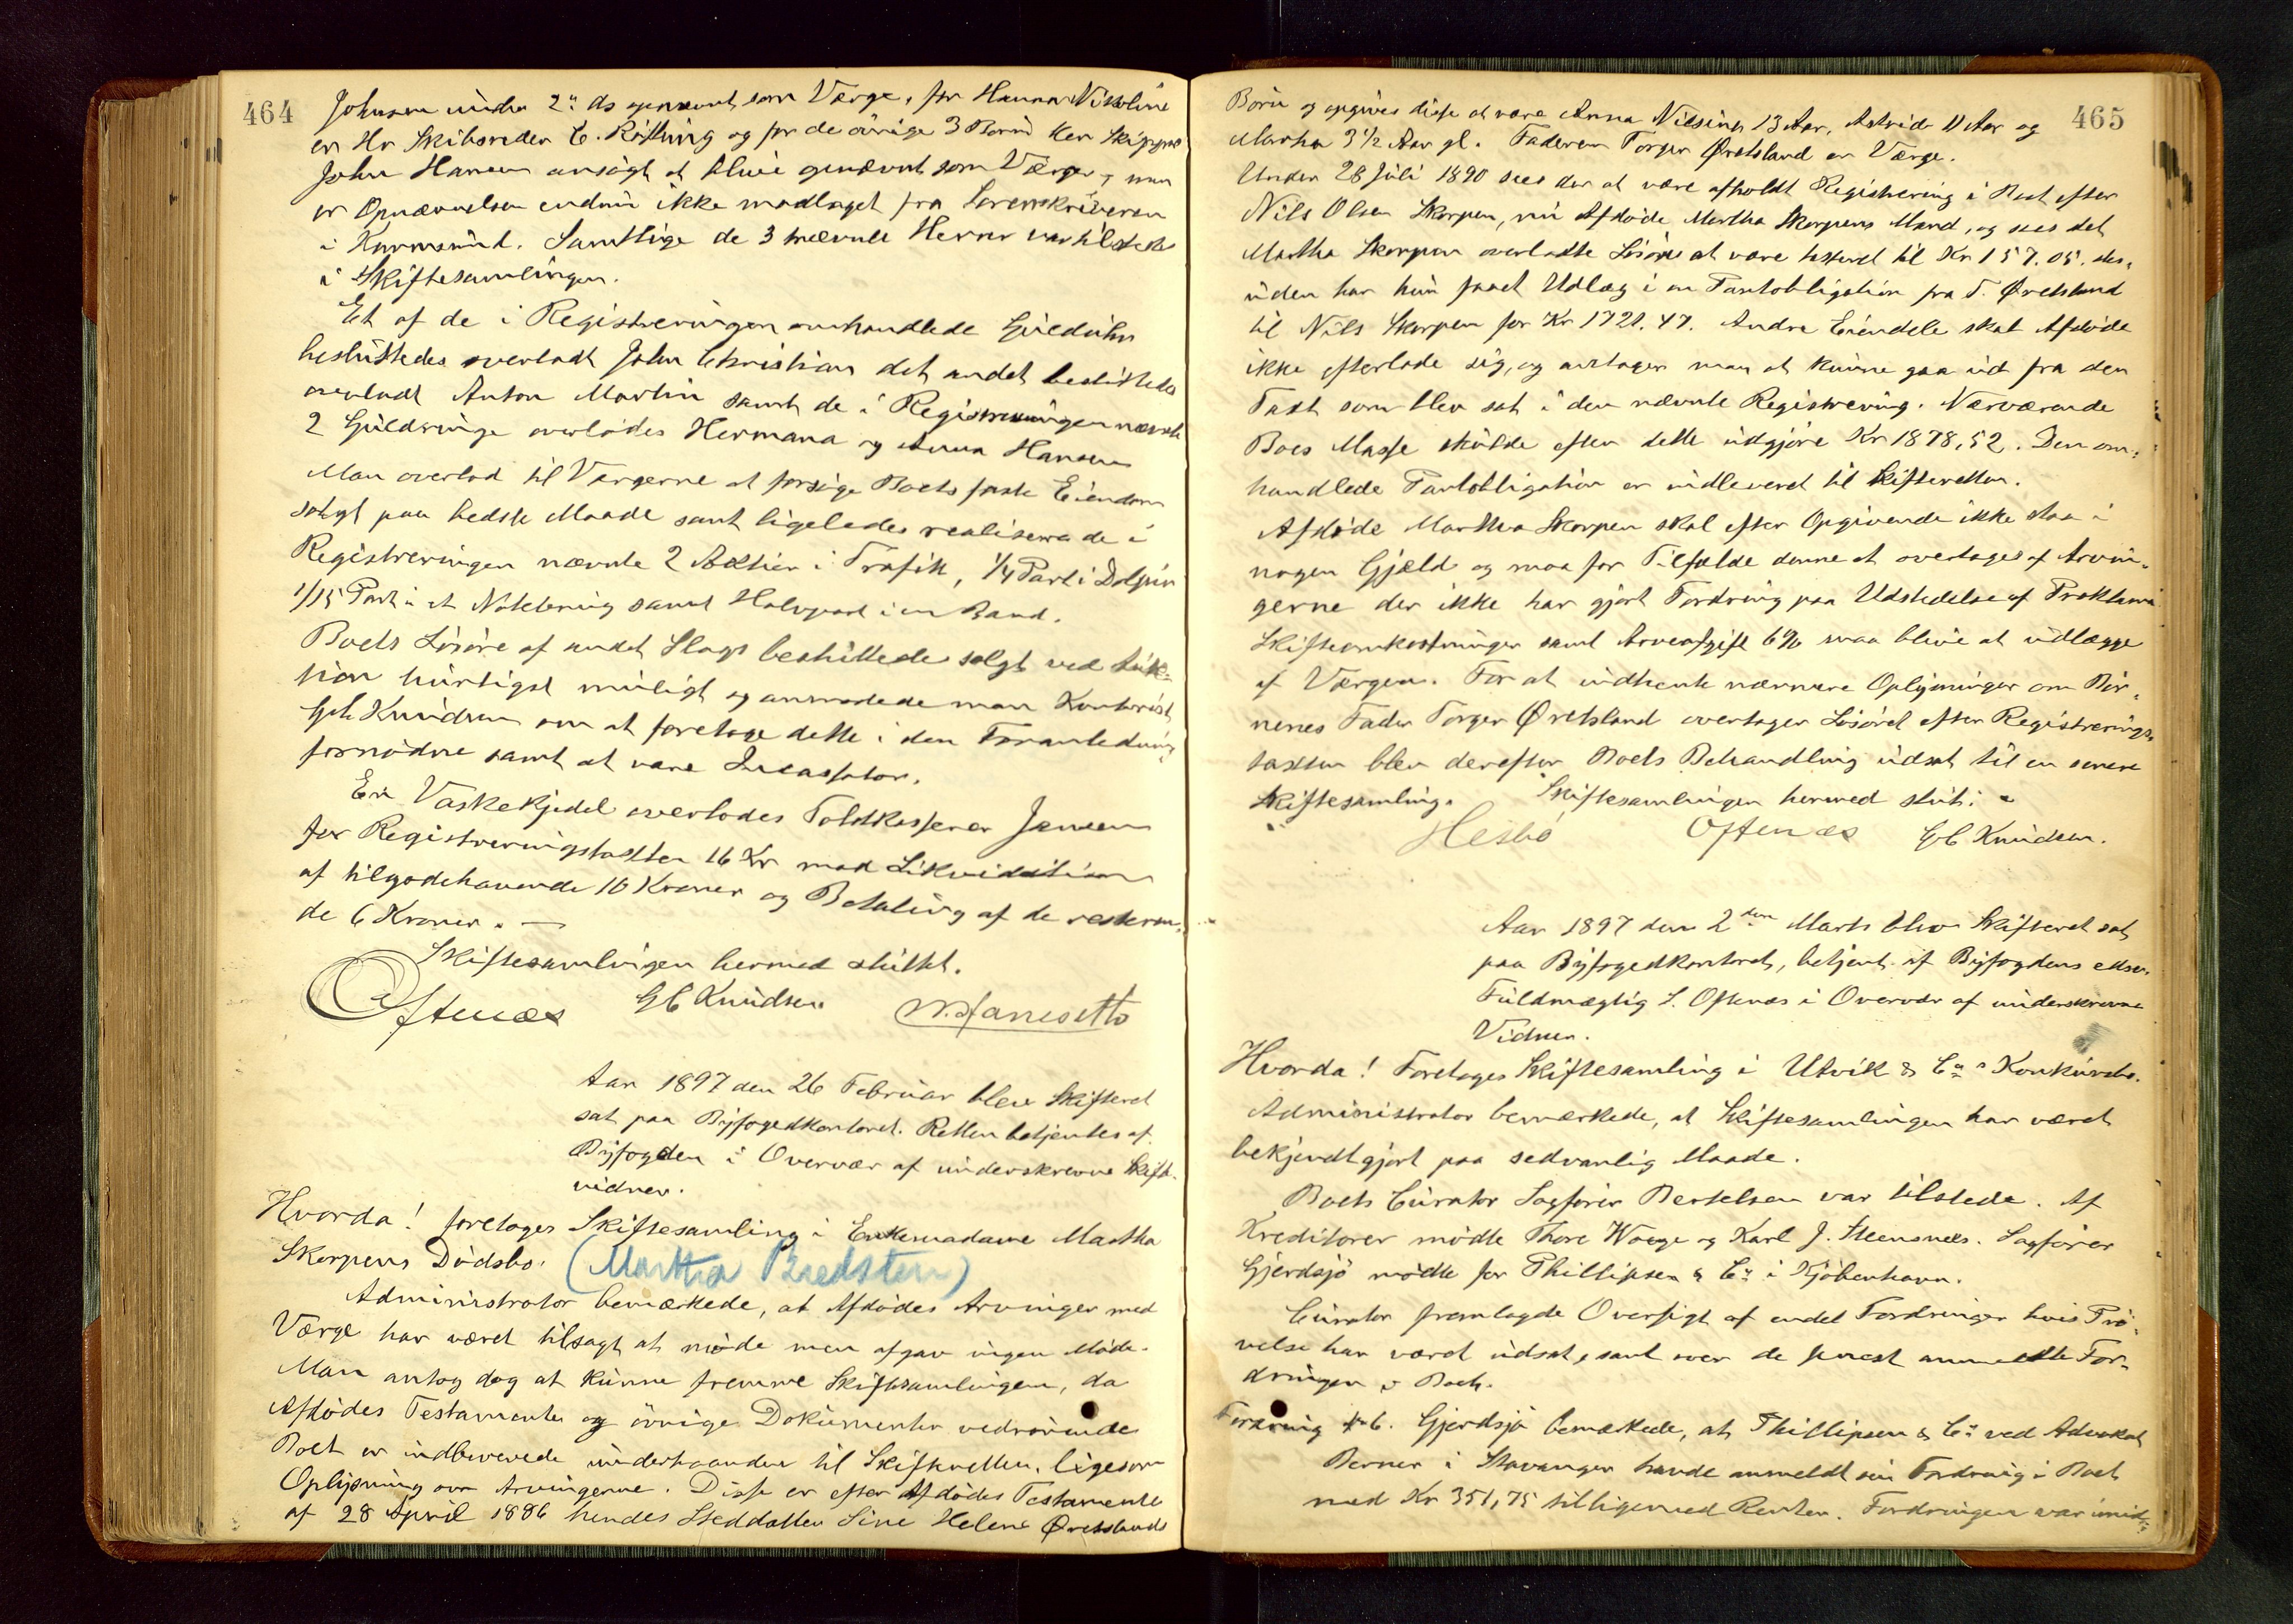 464
Johnsen under 2" ds opnævnt som Værge, for Hanna Nikoline
er Hr Skibsreder C. Röthing og for de övrige 3 Börn Herr Skipper
John Hansen ansögt at blive opnævnt som Værge, men
er Opnævnelsen endnu ikke modtaget fra Sorenskriveren
i Karmsund. Samtlige de 3 nævnte Herrer var tilstede
i Skiftesamlingen.
Et af de i Registreringen omhandlede Gulduhr
besluttedes overladt John Christian det andet besluttedes
overladt Anton Martin samt de i Registreringen nævnte
2 Guldringe overlodes Hermana og Anna Hansen
Man overlod til Værgerne at forsöge Boets faste Eiendom
solgt paa bedste Maade samt ligeledes realisere de i
Registreringen nævnte 2 Aktier i Trafik, 1/4 Part i Dolpin
1/15 Part i et Notebrug samt Halvpart i en Baad.
Boets Lösöre af andet Slags besluttedes solgt ved Auk-
tion hurtigst muligt og anmodede man Kontorist
GC Knudsen om at foretage dette i den Foranledning
fornödne samt at være Incassator.
En Vaskekjedel overlodes Toldkasserer Jansen
for Registreringstaxten 16 Kr mod Likvidation
af tilgodehavende 10 Kroner og Betaling af de resteren-
de 6 Kroner. —
Skiftesamlingen hermed sluttet.
Oftenæs GC Knudsen
Aar 1897 den 26 Februar blev Skifteret
sat paa Byfogedkontoret. Retten betjentes af
Byfogden i Overvær af underskrevne Skift-
vidner.
Hvorda! foretoges Skiftesamling i Enkemadame Martha
Skorpens Dödsbo. (Martha Bredsten)
Administrator bemærkede, at Afdödes Arvinger med
Værge har været tilsagt at möde men afgav ingen Möde.
Man antog dog at kunne fremme Skiftesamlingen, da
Afdödes Testamente og övrige Dokumenter vedrörende
Boet er indleverede underhaanden til Skifteretten, ligesom
Oplysning om Arvingerne. Disse er efter Afdödes Testamente
af 28 April 1886 hendes Steddatter Sine Helene Øretslands
465
Börn og opgives disse at være Anna Nilsine 13 Aar, Astrid 11 Aar og
Martha 3 1/2 Aar gl. Faderen Torger Øretsland er Værge.
Under 28 Juli 1890 sees der at være afholdt Registrering i Boet efter
Nils Olsen Skorpen, nu Afdöde Martha Skorpens Mand, og sees det
Martha Skorpen overladte Lösöre at være taxeret til Kr 157.05. des-
uden har hun faaet Udlæg i en Pantobligation fra T. Øretsland
til Nils Skorpen for Kr 1721.47. Andre Eiendele skal Afdöde
ikke efterlade sig, og antager man at kunne gaa ud fra den
Taxt som blev sat i den nævnte Registrering. Nærværende
Boes Masse skulde efter dette udgjöre Kr 1878,52. Den om-
handlede Pantobligation er indleveret til Skifteretten.
Afdöde Martha Skorpen skal efter Opgivende ikke staa i
nogen Gjæld og maa for Tilfælde denne at overtages af Arvin-
gerne der ikke har gjort Fordring paa Udstedelse af Proklama
Skifteomkostninger samt Arveafgift 6% maa blive at udlægge
af Værgen. For at indhente nærmere Oplysninger om Bör-
nenes Fader Torger Øretsland overtager Lösöret efter Registrerings-
taxten blev derefter Boets Behandling udsat til en senere
Skiftesamling. Skiftesamlingen hermed slut.
Hesbö Oftenæs GC Knudsen.
Aar 1897 den 2den Marts blev Skifteret sat
paa Byfogedkontoret, betjent af Byfogdens edsv.
Fuldmægtig S. Oftenæs i Overvær af underskrevne
Vidner.
Hvorda! Foretoges Skiftesamling i Utvik & Co's Konkursbo.
Administrator bemærkede, at Skiftesamlingen har været
bekjendtgjort paa sedvanlig Maade.
Boets Curator Sagförer Bertelsen var tilstede. Af
Kreditorer mödte Thore Waage og Karl J. Steensnæs. Sagförer
Gjerdsjö mödte for Phillipsen & Co i Kjöbenhavn.
Curator fremlagde Oversigt af endel Fordringer hvis Prö-
velse har været udsat, samt over de senest anmeldte For-
dringer i Boet.
Fordring № 6. Gjerdsjö bemærkede, at Phillipsen & Co ved Advokat
Berner i Stavanger havde anmeldt sin Fordring i Boet
med Kr 351,75 tilligemed Renter. Fordringen var imid-